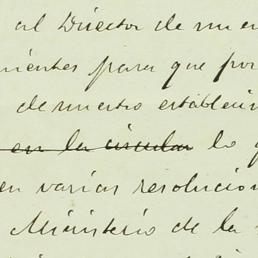 al Director de nues
nientes para que por
de nuestro establecim
en la circular lo q
en varias resolucion
Ministerio de la